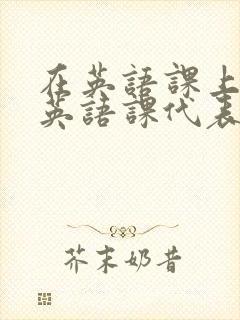 在英語課上
英語課代表
芥末奶昔